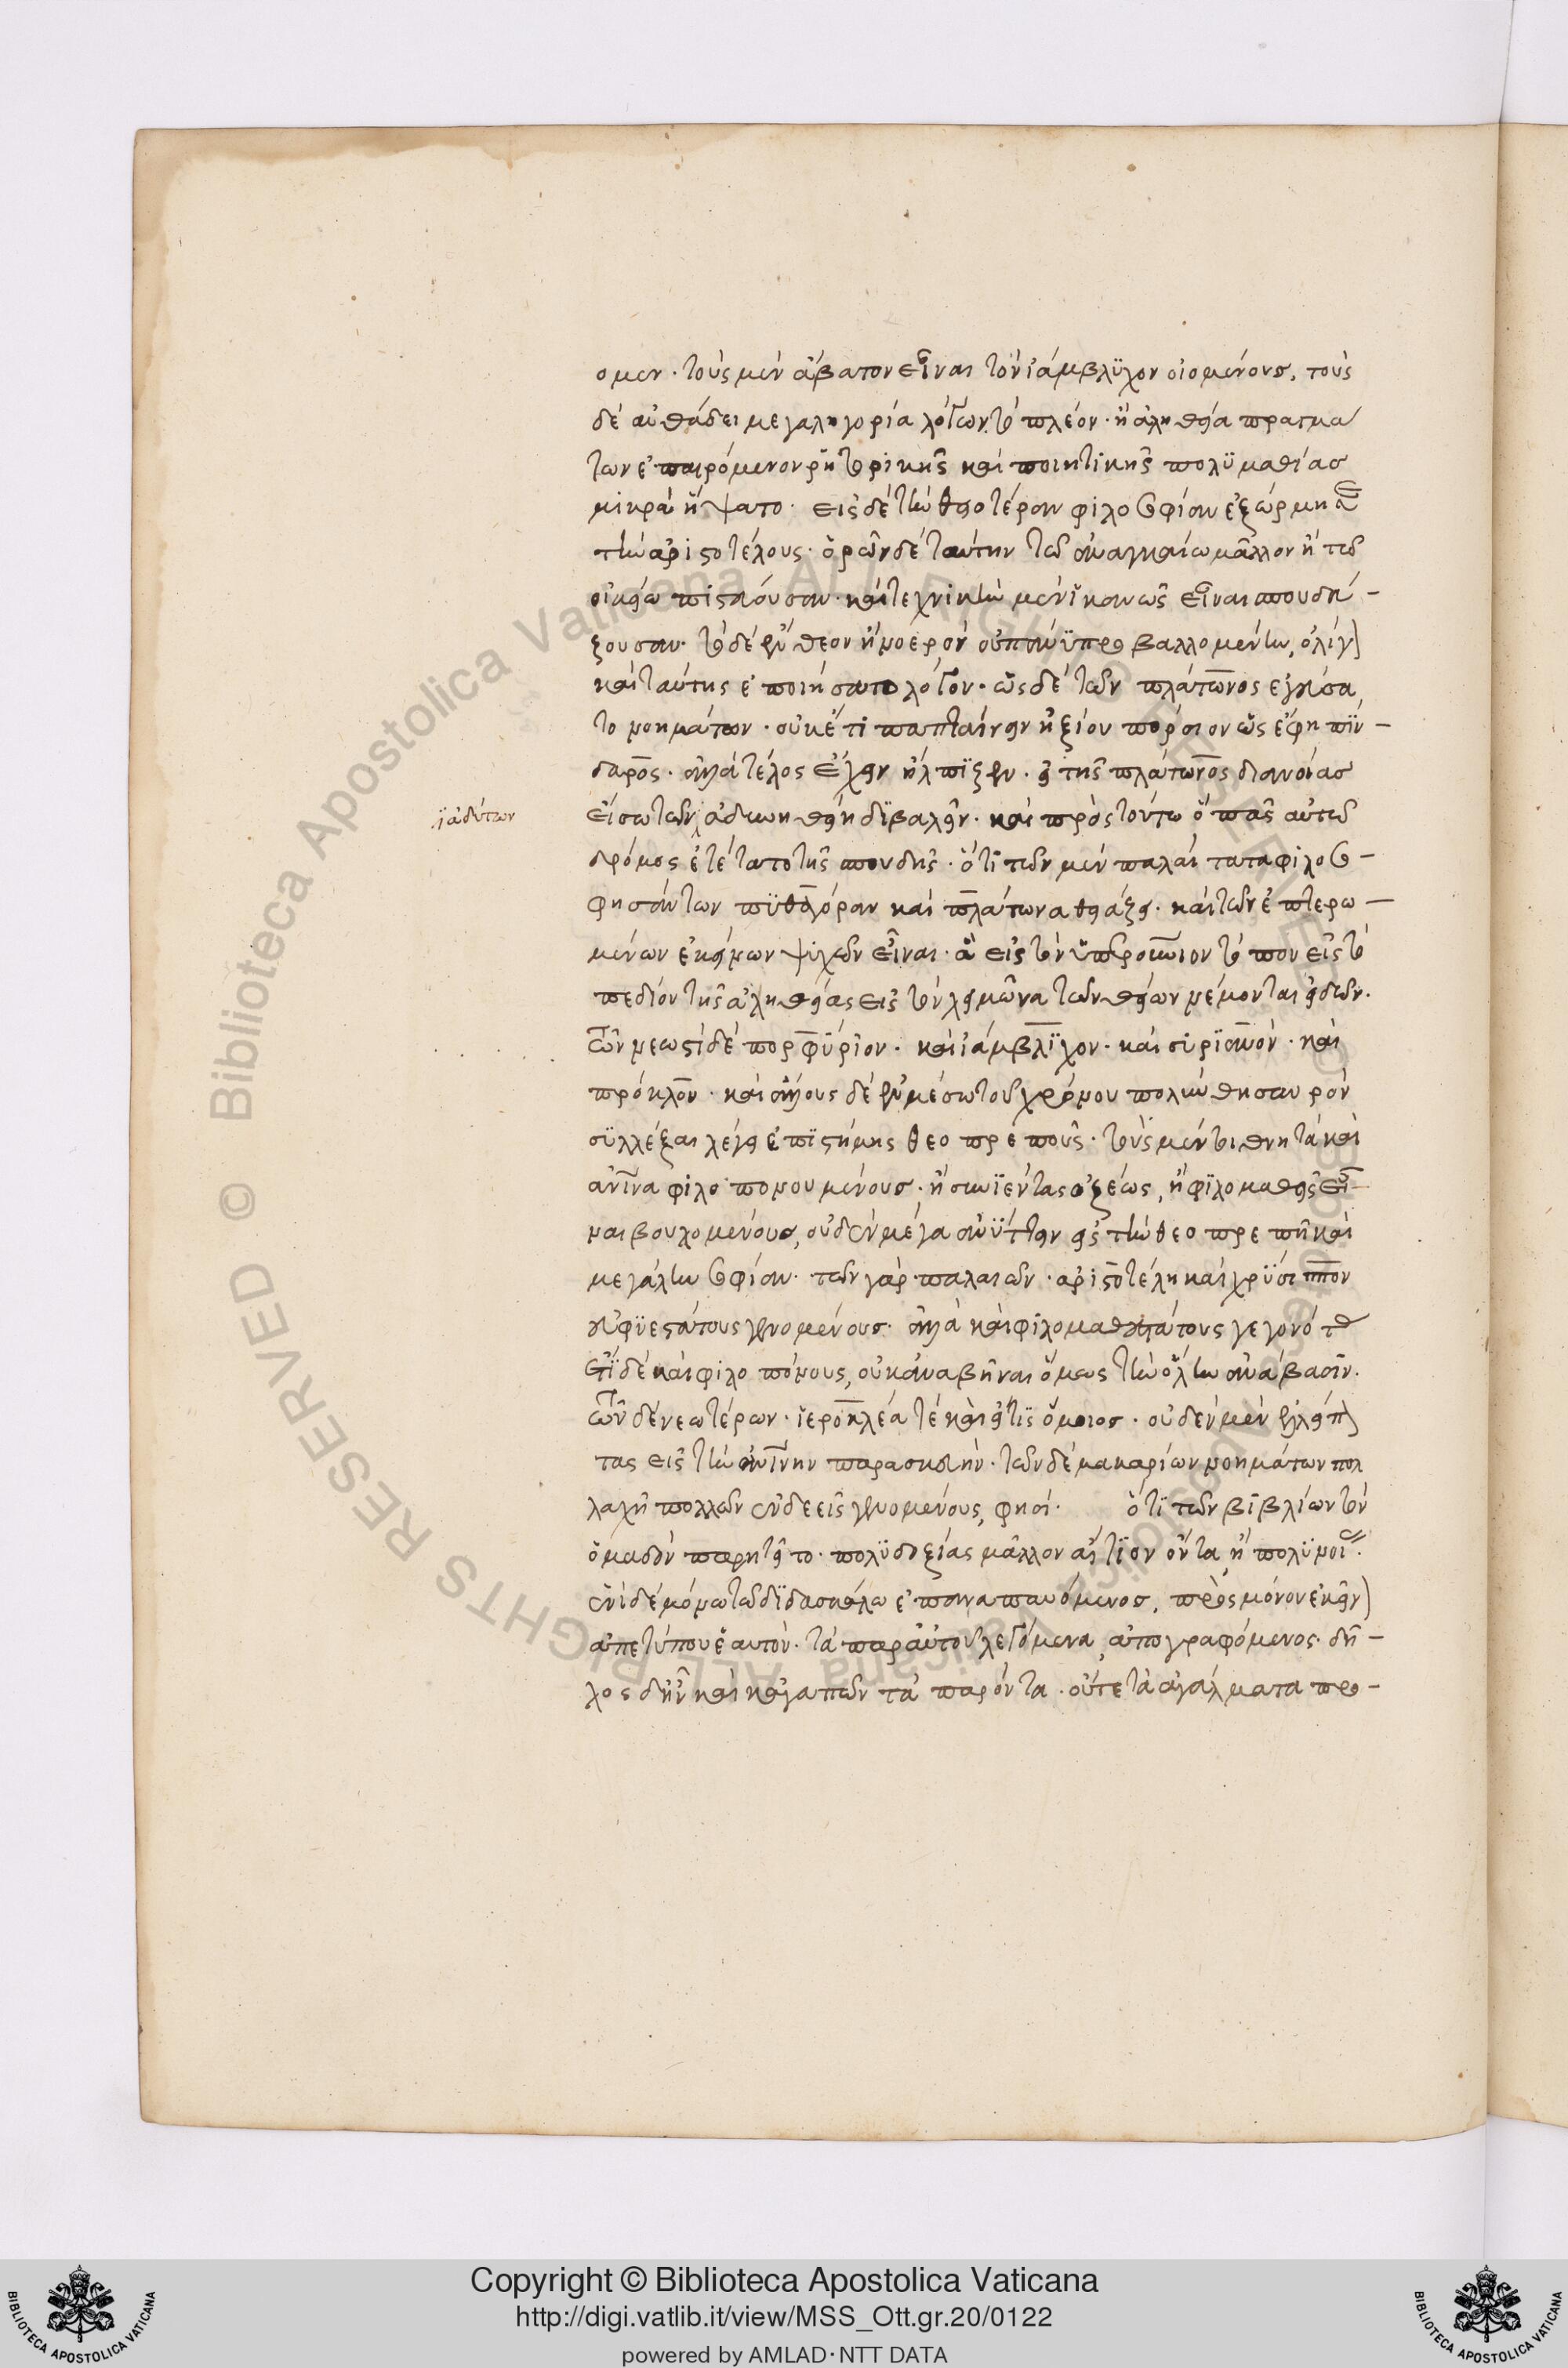 ομεν· τοὺς μὲν ἄβατον εἶναι τὸν ἰάμβλϋχον οἰομένους, τοὺς
δὲ αὐθάδει μεγαληγορία λόγων τὸ πλέον· ἢ ἀληθεία πραγμα
των ἐπαιρόμενον ῥητορικῆς καὶ ποιητικῆς πολϋμαθίας
μικρὰ ἥψατο· εἰς δὲ τὴν θειοτέραν φιλοσοφίαν ἐξώρμησε
τὴν ἀριστοτέλους· ὁρῶν δὲ ταύτην τῶ ἀναγκαίω μᾶλλον ἢ τῶ
οἰκείω πιστεύουσαν· καὶ τεχνικὴν μὲν ἱκανῶς εἶναι σπουδά-
ζουσαν· τὸ δὲ ἔνθεον ἢ νοερὸν οὐ πάνϋ προβαλλομένην, ὀλίγον
καὶ ταύτης ἐποιήσατο λόγον· ὡς δὲ τῶν πλάτωνος ἐγεύσα
το νοημάτων· οὐκέτι παπταίνειν ἠξίου πόρσιον ὥς ἔφη πϊν-
δαρος· ἀλλὰ τέλος ἔχειν ἤλπϊζεν· εἰ τῆς πλάτωνος διανοίας
εἴσω τῶν ἀδικων θείη δϊβαλεῖν· καὶ πρὸς τοῦτω ὁ πᾶς αὐτῶ
ἀδύτων
δρόμος ἐτέτατο τῆς σπουδῆς· ὅτι τῶν μὲν παλαίτατα φιλοσο-
φησάντων πϋθαγόραν καὶ πλάτωνα θειάζει· καὶ τῶν ἐπτερω-
μένων ἐκείνων ψυχῶν εἶναι· αἳ εἰς τὸν ὑπερουράνιον τόπον εἰς τὸ
πεδίον τῆς ἀληθείας εἰς τὸν λειμῶνα τῶν θείων νέμονται εἰδῶν·
τῶν νεωστὶ δὲ πορφύρϊον· καὶ ἰάμβλϊχον· καὶ συρϊανὸν· καὶ
πρόκλον· καὶ ἄλλους δὲ ἐν μέσω τοῦ χρόνου πολὺν θησαυρὸν
σϋλλέξαι λέγει ἐπϊστήμης θεοπρεποῦς· τοὺς μέντοι θνητὰ καὶ
ἀνθρώπινα φιλοπονουμένους· ἢ συνϊέντας ὀξέως, ἢ φϊλομαθεῖς εἶ
ναι βουλομένους, οὐδὲν μέγα ἀνύττειν εἰς τὴν θεοπρεπῆ καὶ
μεγάλην σοφίαν· τῶν γὰρ παλαιῶν· ἀριστοτέλη καὶ χρϋσιππον
εὐφϋεστάτους γενομένους· ἀλλὰ καὶ φιλομαθεστάτους γεγονότας
ἔτϊ δὲ καὶ φιλοπόνους, οὐκ ἀναβῆναι ὅμως τὴν ὅλην ἀνάβασϊν·
τῶν δὲ νεωτέρων· ἱεροκλέα τὲ καὶ εἴ τϊς ὅμοιος· οὐδὲν μὲν ἐλλείπον
τας εἰς τὴν ἀνθρωπίνην παρασκευὴν· τῶν δὲ μακαρίων νοημάτων πολ
λαχῆ πολλῶν ἐνδεεῖς γενομένους, φησί· ὅτϊ τῶν βιβλίων τὸν
ὅμαδον παρητεῖτο· πολϋδοξίας μᾶλλον αἴτϊον ὄντα, ἢ πολϋνοίας·
ἐνὶ δὲ μόνω τῶ δϊδασκάλω ἐπαναπαυόμενος, πρὸς μόνον ἐκεῖνον
ἀπετύπου ἑαυτὸν· τὰ παρ αὐτοῦ λεγόμενα, ἀπογραφόμενος· δῆ-
λος δ ἦν καὶ κἀγαπῶν τὰ παρόντα· οὔτε τὰ ἀγάλματα προ-
Copyright © Biblioteca Apostolica Vaticana
http://digi.vatlib.it/view/MSS_Ott.gr.20/0122
powered by AMLAD·NTT DATA